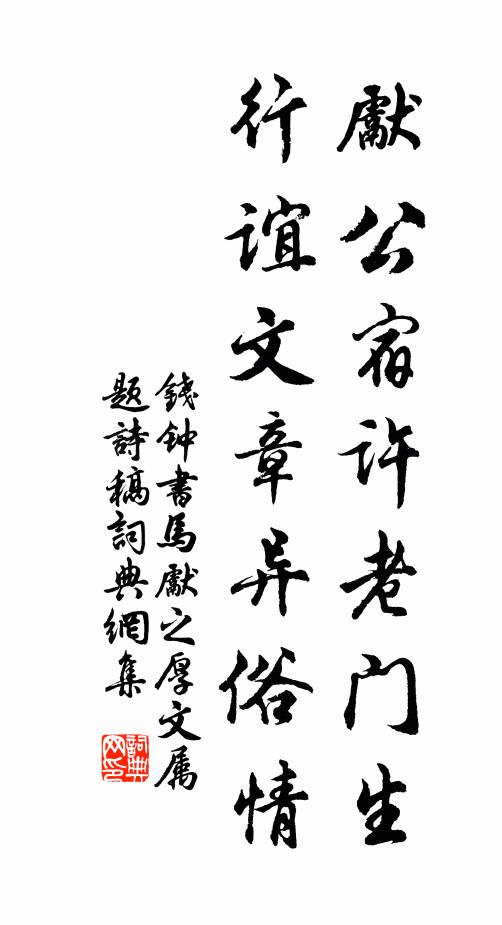 獻公宿许老门生
行谊文章异俗情
錢钟書馬獻之厚文属
题詩稿詞典網集
詞典网印